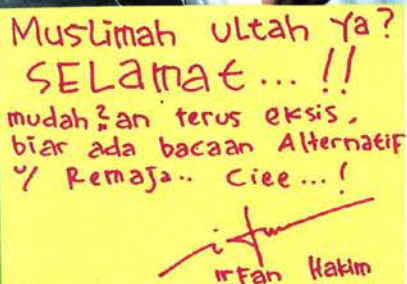 Muslimah ultah ya?
SELamat... !!
mudah2an terus eksis.
biar ada bacaan Alternatif
u/ Remaja.. Ciee...!
irFan Hakim